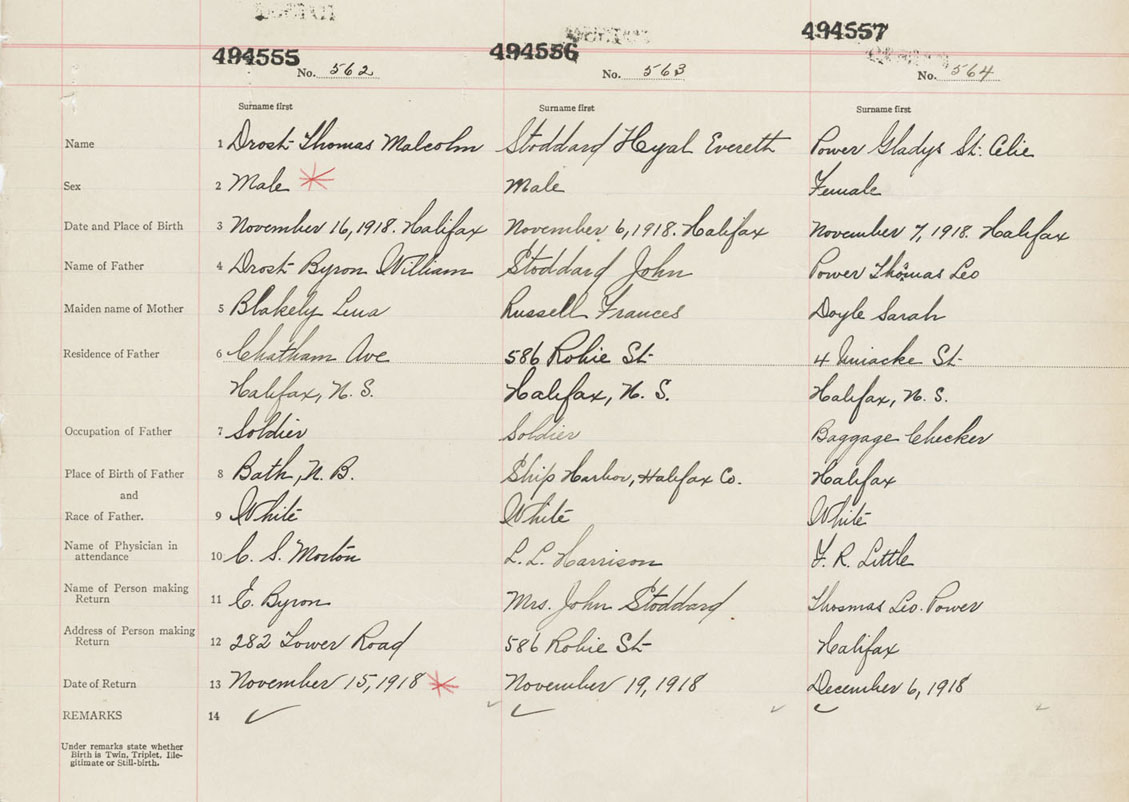 494555 494556 494557
No. 562 No. 563 No. 564
Surname first Surname first Surname first
Name 1 Drost Thomas Malcolm Stoddard Hyal Evereth Power Gladys St. Celie
Sex 2 Male Male Female
Date and Place of Birth 3 November 16, 1918. Halifax November 6, 1918. Halifax November 7, 1918. Halifax
Name of Father 4 Drost Byron William Stoddard John Power Thomas Leo
Maiden name of Mother 5 Blakely Lena Russell Frances Doyle Sarah
Residence of Father 6 Chatham Ave 586 Robie St 4 Uniacke St
Halifax, N. S. Halifax, N. S. Halifax, N. S.
Occupation of Father 7 Soldier Soldier Baggage Checker
Place of Birth of Father 8 Bath, N. B. Ship Harbor, Halifax Co. Halifax
and
Race of Father. 9 White White White
Name of Physician in
attendance 10 C. S. Morton L. L. Harrison F. R. Little
Name of Person making
Return 11 E. Byron Mrs. John Stoddard Thosmas Leo. Power
Address of Person making
Return 12 282 Tower Road 586 Robie St Halifax
Date of Return 13 November 15, 1918 November 19, 1918 December 6, 1918
REMARKS 14
Under remarks state whether
Birth is Twin, Triplet, Ille-
gitimate or Still-birth.